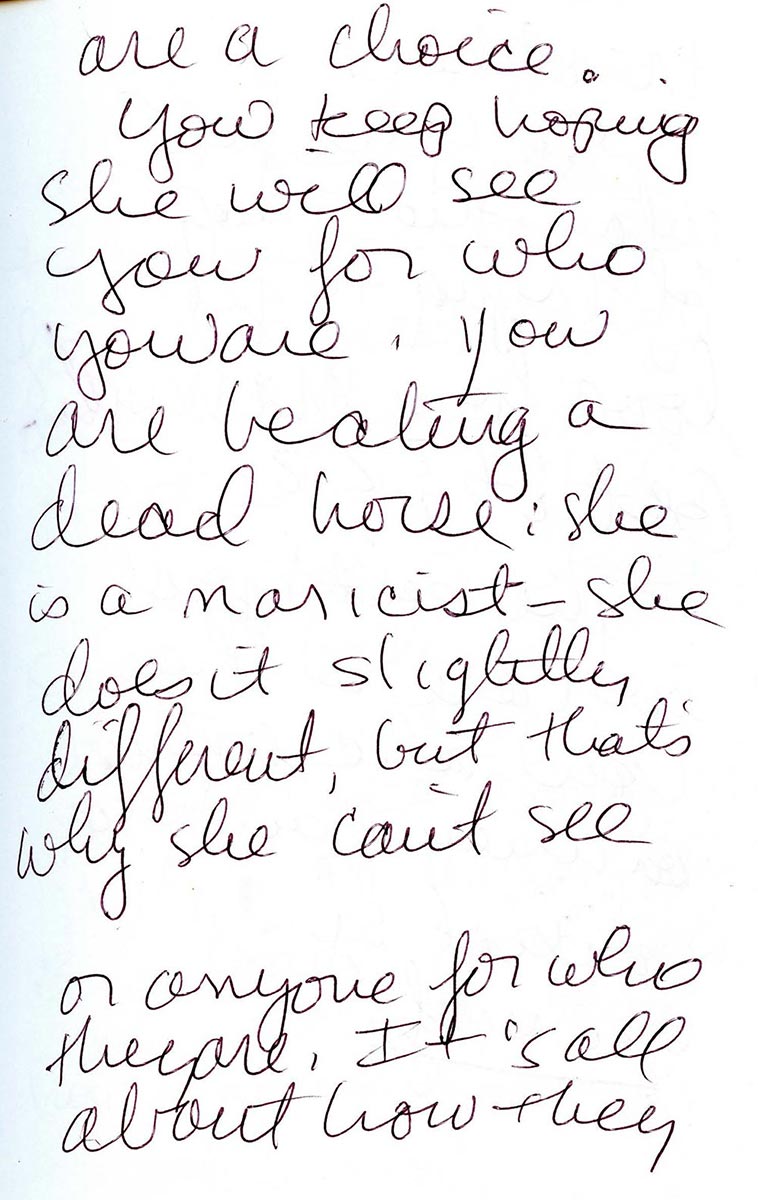 are a choice.
You keep hoping
she will see
you for who
you are. You
are beating a
dead horse: she
is a narricist - she
does it slightly
different, but that's
why she can't see
or anyone for who
they are. It's all
about how they